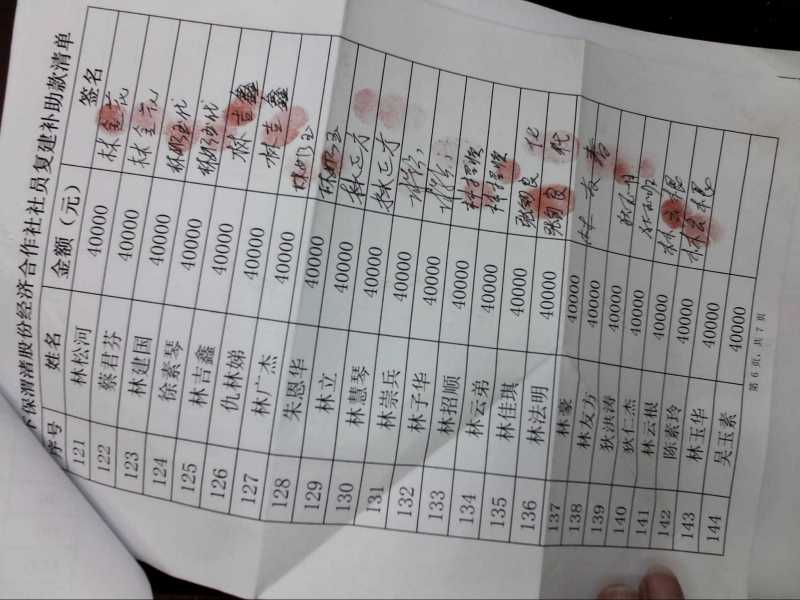 保渭清股份经济合作社社员复建补助款清单
序号 姓名 金额（元） 签名
121 林松河 40000 林金花
122 蔡君芬 40000 林金花
123 林建国 40000
124 徐素琴 40000
125 林吉鑫 40000 林吉鑫
126 仇林娣 40000 林吉鑫
127 林广杰 40000
128 朱恩华 40000
129 林立 40000
130 林慧琴 40000
131 林崇兵 40000
132 林子华 40000
133 林招顺 40000
134 林云弟 40000
135 林佳琪 40000 张菊良 代
136 林法明 40000 张菊良 代
137 林豪 40000
138 林友方 40000
139 狄洪涛 40000
140 狄仁杰 40000
141 林云根 40000 林云根
142 陈素玲 40000 林云根
143 林玉华 40000
144 吴玉素 40000
第 6 页，共 7 页